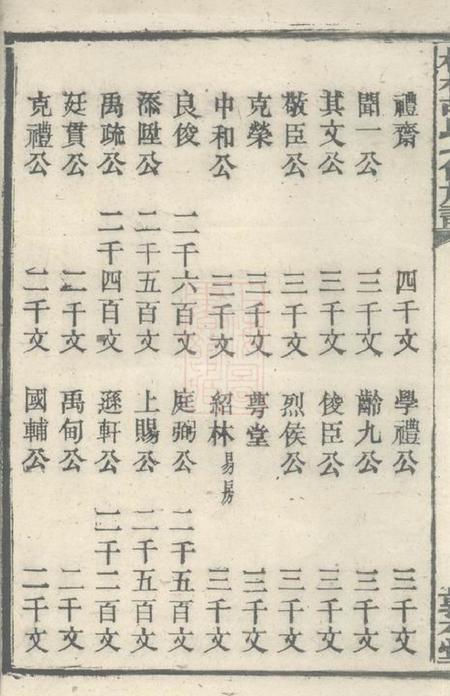 禮齋 四千文 學禮公 三千文
聞一公 三千文 齡九公 三千文
其文公 三千文 俊臣公 三千文
敬臣公 三千文 烈侯公 三千文
克榮 三千文 萼堂 三千文
中和公 三千文 紹林易房 三千文
良俊 二千六百文 庭弼公 二千五百文
添陞公 二千五百文 上賜公 二千五百文
禹疏公 二千四百文 遜軒公 二千二百文
廷貫公 二千文 禹甸公 二千文
克禮公 二千文 國輔公 二千文